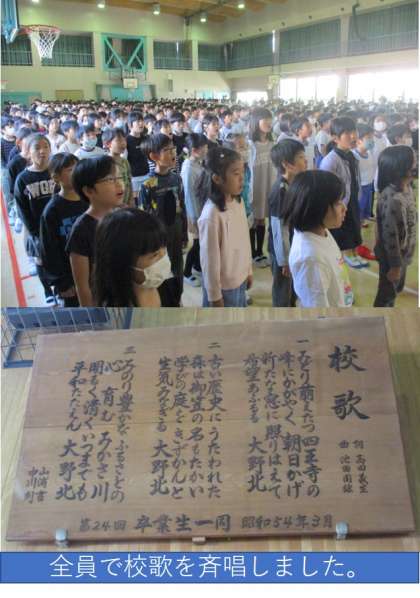 校歌
詞 高田義生
曲 池田国緑
一 みどり萌えたつ 四王寺の
峰にかがやく 朝日かげ
新たな窓に 照りはえて
希望あふるる 大野北
二 古い歴史に うたわれた
森は御笠の 名もたかい
学びの庭を きずかんと
生気みなぎる 大野北
三 みのり豊かな ふるさとの
心育む みかさ川
明るく清く いつまでも
平和たたえん 大野北
山浦書
中川刻
第24回 卒業生一同 昭和54年3月
全員で校歌を斉唱しました。